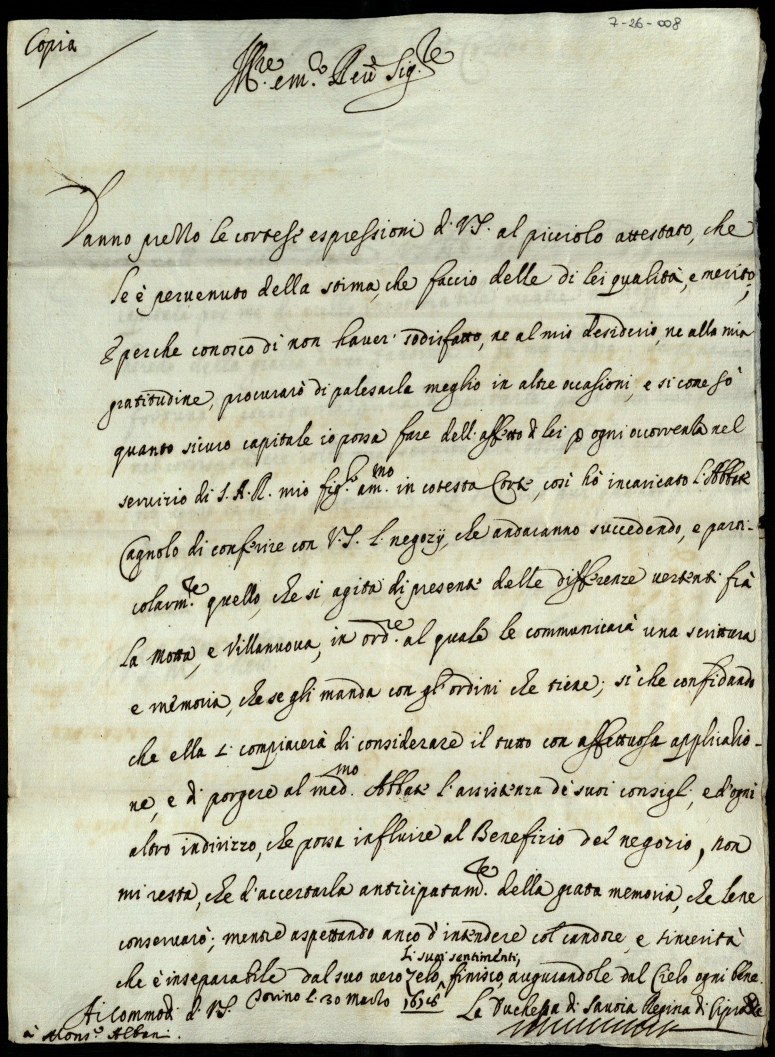 7-26-008
Copia
Ill.re e m.o Rev.d Sig.re
Danno prezzo le cortesi espressioni di V.S. al picciolo attestato, che
le è pervenuto della stima, che faccio delle di lei qualità, e merito,
e perche conosco di non haver sodisfatto, ne al mio desiderio, ne alla mia
gratitudine, procurarò di palesarla meglio in altre occasioni, e si come sò
quanto sicuro capitale io possa fare dell'affetto di lei p ogni occorrenza nel
servizio di S.A.R. mio fig.lo am.mo in cotesta Corte, così hò incaricato l'Abbate
Cagnolo di conferire con V.S. li negozÿ, che andaranno succedendo, e parti-
colarm.te quello, che si agita di presente delle differenze vertenti frà
la Motta, e Villanuova, in ord.e al quale le communicarà una scrittura
e memoria, che se gli manda con gl'ordini che tiene; sì che confidando
che ella si compiacerà di considerare il tutto con affettuosa applicazio-
ne, e di porgere al med.mo Abbate l'assistenza de suoi consigli, e d'ogni
altro indirizzo, che possa influire al Beneficio del negozio, non
mi resta, che d'accertarla anticipatam.te della grata memoria, che bene
conservarò; mentre aspettando anco d'intendere col candore, e sincerità
li suoi sentimenti,
che è inseparabile dal suo vero zelo, finisco, augurandole dal Cielo ogni bene.
Torino li 30 Marzo 1676
Ai commodi di V.S. La Duchessa di Savoia Regina di Cipro
à Mons.r Albani.